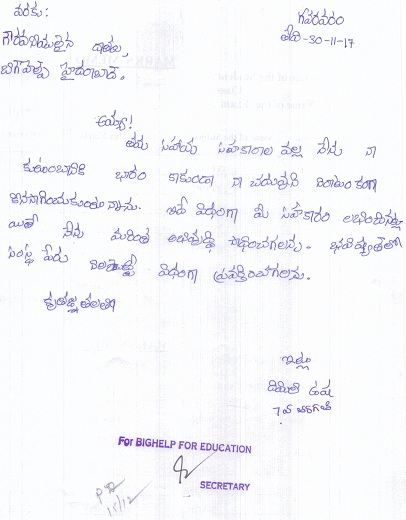 వరకు:
గవరవరం
తేది-30-11-17
గౌరవనీయులైన దాతలు,
బిగ్‌హెల్ప్ హైదరాబాద్.
అయ్యా!
తమ సహాయ సహకారాల వల్ల నేను నా
కుటుంబానికి భారం కాకుండా నా చదువుని నిరాటంకంగా
కొనసాగించుకుంటున్నాను. ఇదే విధంగా మీ సహకారం లభించినట్లు
యితే నేను మరింత అభివృద్ధి సాధించగలను. భవిష్యత్తులో
సంస్థ పేరు నిలబెట్టే విధంగా ప్రవర్తించగలను.
కృతజ్ఞతలతో
ఇట్లు
ఉష
7వ తరగతి
For BIGHELP FOR EDUCATION
SECRETARY
15/12